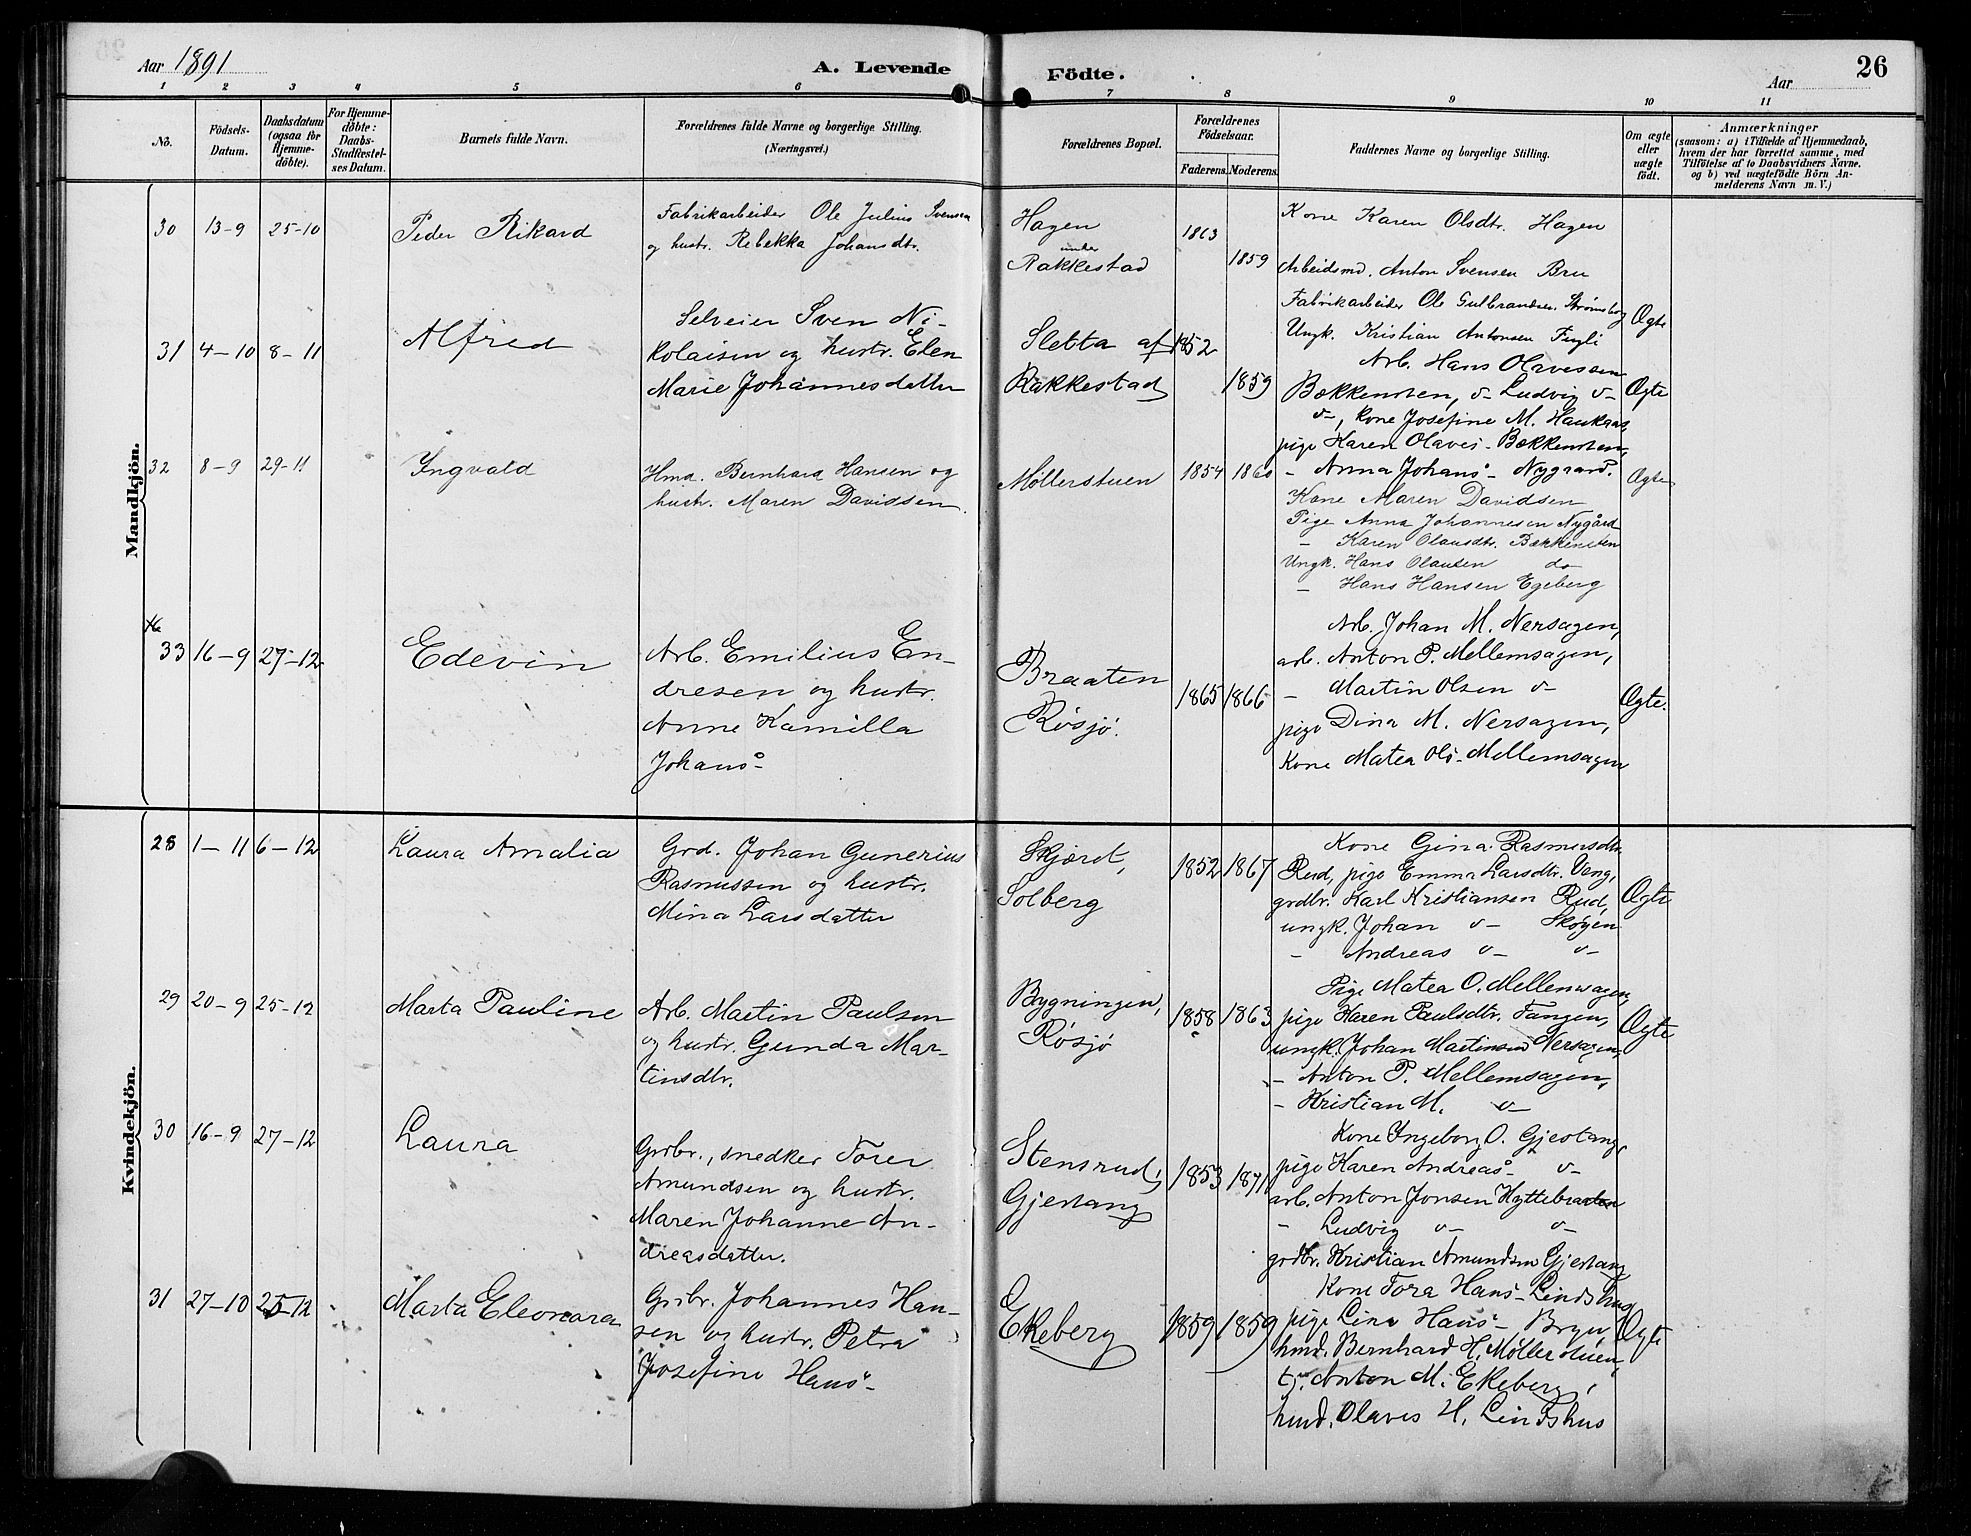 Aar 1891
A. Levende Födte.
Aar
26
1 2 3 4 5 6 7 8 9 10 11
No.
Födsels-Datum.
Daabsdatum (ogsaa for Hjemme-döbte).
For Hjemme-döbte: Daabs-Stadfæstel-ses Datum.
Barnets fulde Navn.
Forældrenes fulde Navne og borgerlige Stilling.
(Næringsvei.)
Forældrenes Bopæl.
Forældrenes Födselsaar.
Faderens. Moderens.
Faddernes Navne og borgerlige Stilling.
Om ægte eller uægte födt.
Anmærkninger
(saasom: a) i Tilfælde af Hjemmedaab,
hvem der har forrettet samme, med
Tilföielse af to Daabsvidners Navne.
og b) ved uægtefödte Börn An-
melderens Navn m. V.)
Mandkjön.
30 13-9 25-10 Peder Rikard
Fabrikarbeider Ole Julius Svensen
og hustr. Rebekka Johansdtr.
Hagen
under
Rakkestad
1863 1859
Kone Karen Olsdtr. Hagen
Arbeidsmd. Anton Svensen Bru
Fabrikarbeider Ole Gulbrandsen Strømsborg
Ungk. Kristian Antonsen
Ægte
31 4-10 8-11 Alfred
Selveier Sven Ni-
kolaisen og hustr. Elen
Marie Johannesdatter
Sletta af
Rakkestad
1852 1859
Arb. Hans Olavessen
Bækkensten, o- Ludvig o-
o-, kone Josefine M. Haukaas,
pige Karen Olaves- Bækkensten,
- Anna Johans- Nygaard.
Ægte
32 8-9 29-11 Ingvald
Hmd. Bernhard Hansen og
hustr. Maren Davidsen.
Møllerstuen
1854 1860
Kone Maren Davidsen
Pige Anna Johannesen Nygård
- Karen Olausdtr. Bækkensten
Ungk. Hans Olausen do
- Hans Hansen Egeberg
Ægte
33 16-9 27-12 Edevin
Arb. Emilius En-
dresen og hustr.
Anne Kamilla
Johans-
Braaten
Røsjø.
1865 1866
Arb. Johan M. Nersagen,
arb. Anton P. Mellemsagen,
- Martin Olsen o-
pige Dina M. Nersagen,
Kone Matea Ols- Mellemsagen
Ægte.
Kvindekjön.
28 1-11 6-12 Laura Amalia
Grd. Johan Gunerius
Rasmussen og hustr.
Mina Larsdatter
Skjæret,
Solberg
1852 1867
Kone Gina Rasmusdtr.
Rud, pige Emma Larsdtr. Veng,
grdbr. Karl Kristiansen Rud,
ungk. Johan o- Skøyen
- Andreas o- o-
Ægte
29 20-9 25-12 Marta Pauline
Arb. Martin Paulsen
og hustr. Gunda Mar-
tinsdtr.
Bygningen,
Røsjø
1858 1863
Pige Matea O. Mellemsagen,
pige Karen Paulsdtr. Tangen,
ungk. Johan Martinsen Nersagen,
- Anton P. Mellemsagen,
- Kristian M. o-
Ægte
30 16-9 27-12 Laura
Grdbr., snedker Torer
Amundsen og hustr.
Maren Johanne An-
dreasdatter.
Stensrud,
Gjestang
1853 1871
Kone Ingeborg O. Gjestang,
pige Karen Andreas- o-
arb. Anton Jonsen Hyttebraaten
- Ludvig o- o-
grdbr. Kristian Amundsen Gjestang
31 27-10 25-12 Marta Eleonora
Grdbr. Johannes Han-
sen og hustr. Petra
Josefine Hans-
Ekeberg
1859 1859
Kone Tora Hans- Lindshus
pige Lina Hans- Bryn,
hmd. Bernhard H. Møllerstuen,
tj. Anton M. Ekeberg,
hmd. Olaves H. Lindshus
Ægte